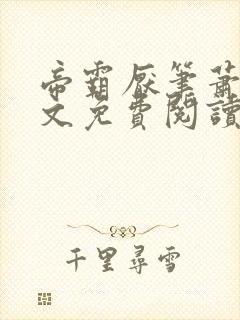 帝霸厭筆蕭
文免費閱讀
千里尋雪